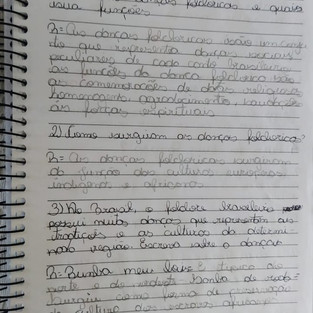 danças folclóricas e quais
suas funções
R= As danças folclóricas são um conju
to que representa danças sociais
peculiares de cada canto brasileiro
as funções da dança folclórica são
as comemorações de datas religiosas
homenagens, agradecimento, saudações
às forças espirituais
2) Como surgiram as danças folclóricas?
R= As danças folclóricas surgiram
da junção das culturas europeias
indígena e africana
3) No Brasil, o folclore brasileiro
possui muitas danças que representam as
tradições e as culturas de determi-
nada região. Escreva sobre a danças
R= Bumba meu boi: típica do
norte e do nordeste
Surgiu como forma de